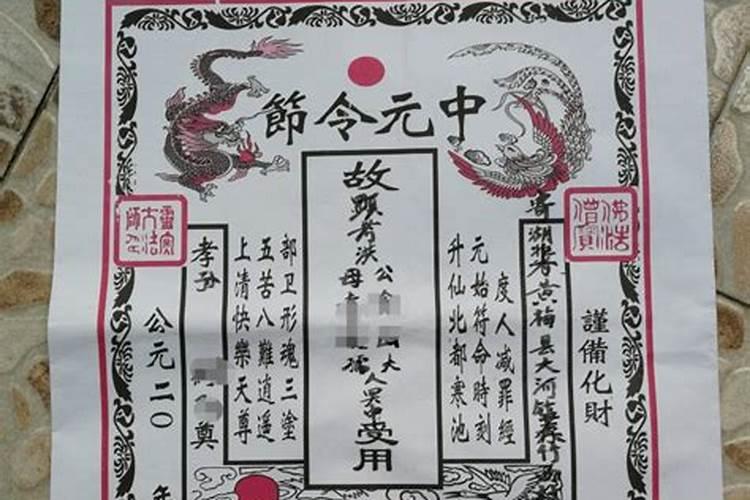 中元令節
佛法僧寶
謹備化財
寄湖北黄梅县大河镇
度人减罪經
元始符命時刻
升仙北都寒池
故顯考洪公大
母孺人冥中受用
部卫形魂三塗
五苦八難逍遥
上清快樂天尊
孝孙奠
公元二〇年